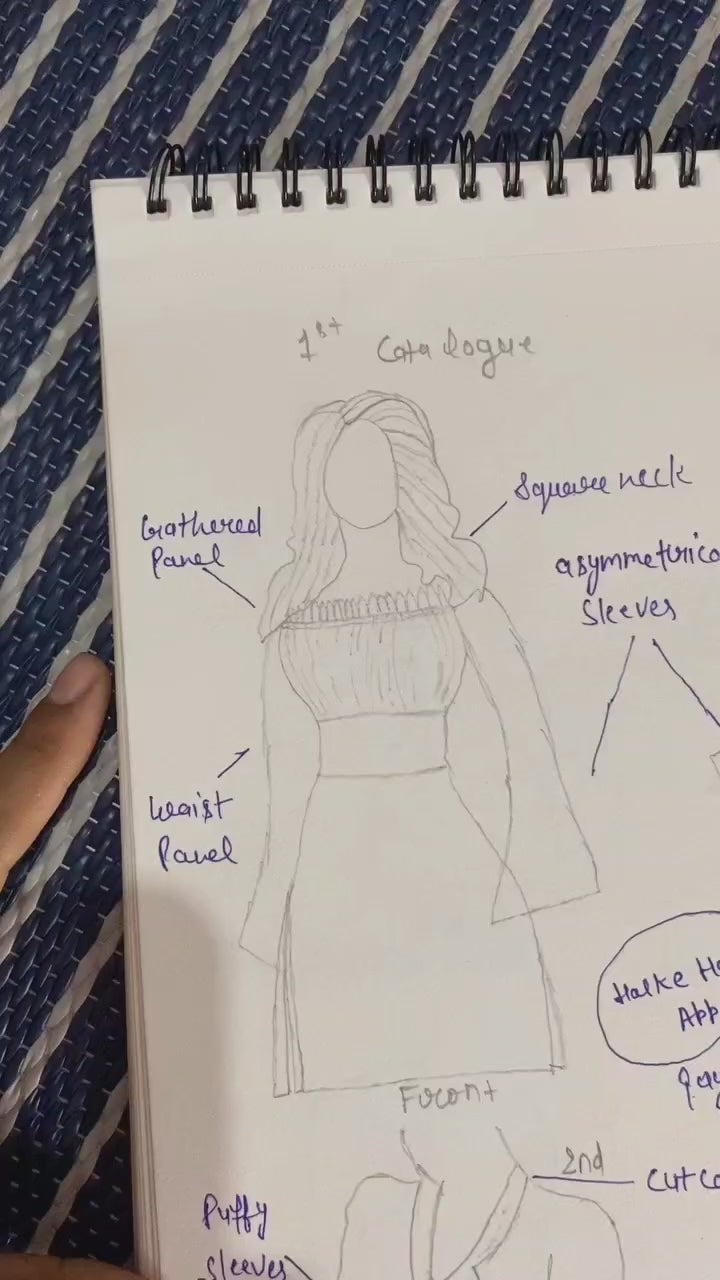 1st Catalogue
Square neck
Gathered
Panel
asymmetrica
Sleeves
Waist
Panel
Halke
App
Front
2nd
Puffy
Sleeves